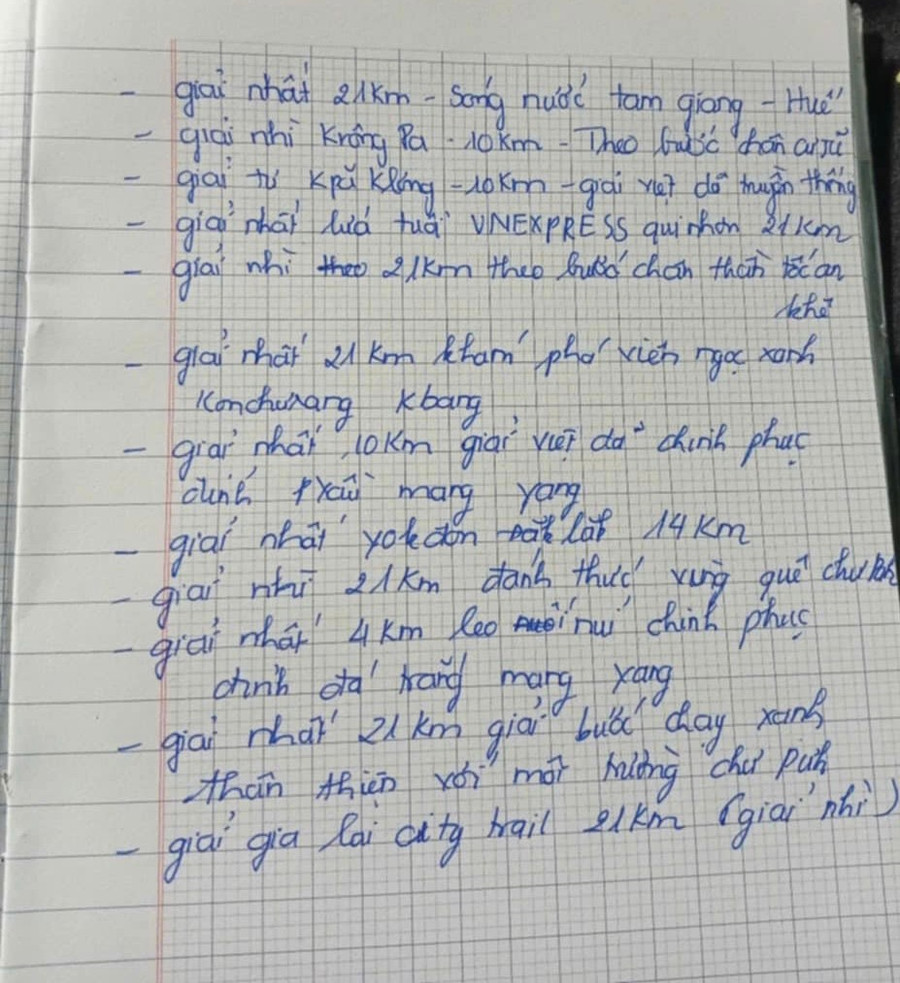 - giải nhất 21km - sóng nước tam giang - Huế
- giải nhì Krông Pa - 10km - Theo bước chân
- giải tư Kpă Klơng - 10Km - giải việt dã truyền thống
- giải nhất lứa tuổi VNEXPRESS qui nhơn 21km
- giải nhì theo 21km theo bước chân thần tốc an
khê
- giải nhất 21km khám phá viên ngọc xanh
Konchưrang Kbang
- giải nhất 10Km giải việt dã chinh phục
đỉnh mang yang
- giải nhất yokđôn lăk 14km
- giải nhì 21km đánh thức vùng quê chư
- giải nhất 4km leo núi chinh phục
đỉnh đá trắng mang yang
- giải nhất 21km giải bước chạy xanh
thân thiện với môi trường chư păh
- giải gia lai city trail 21km (giải nhì)